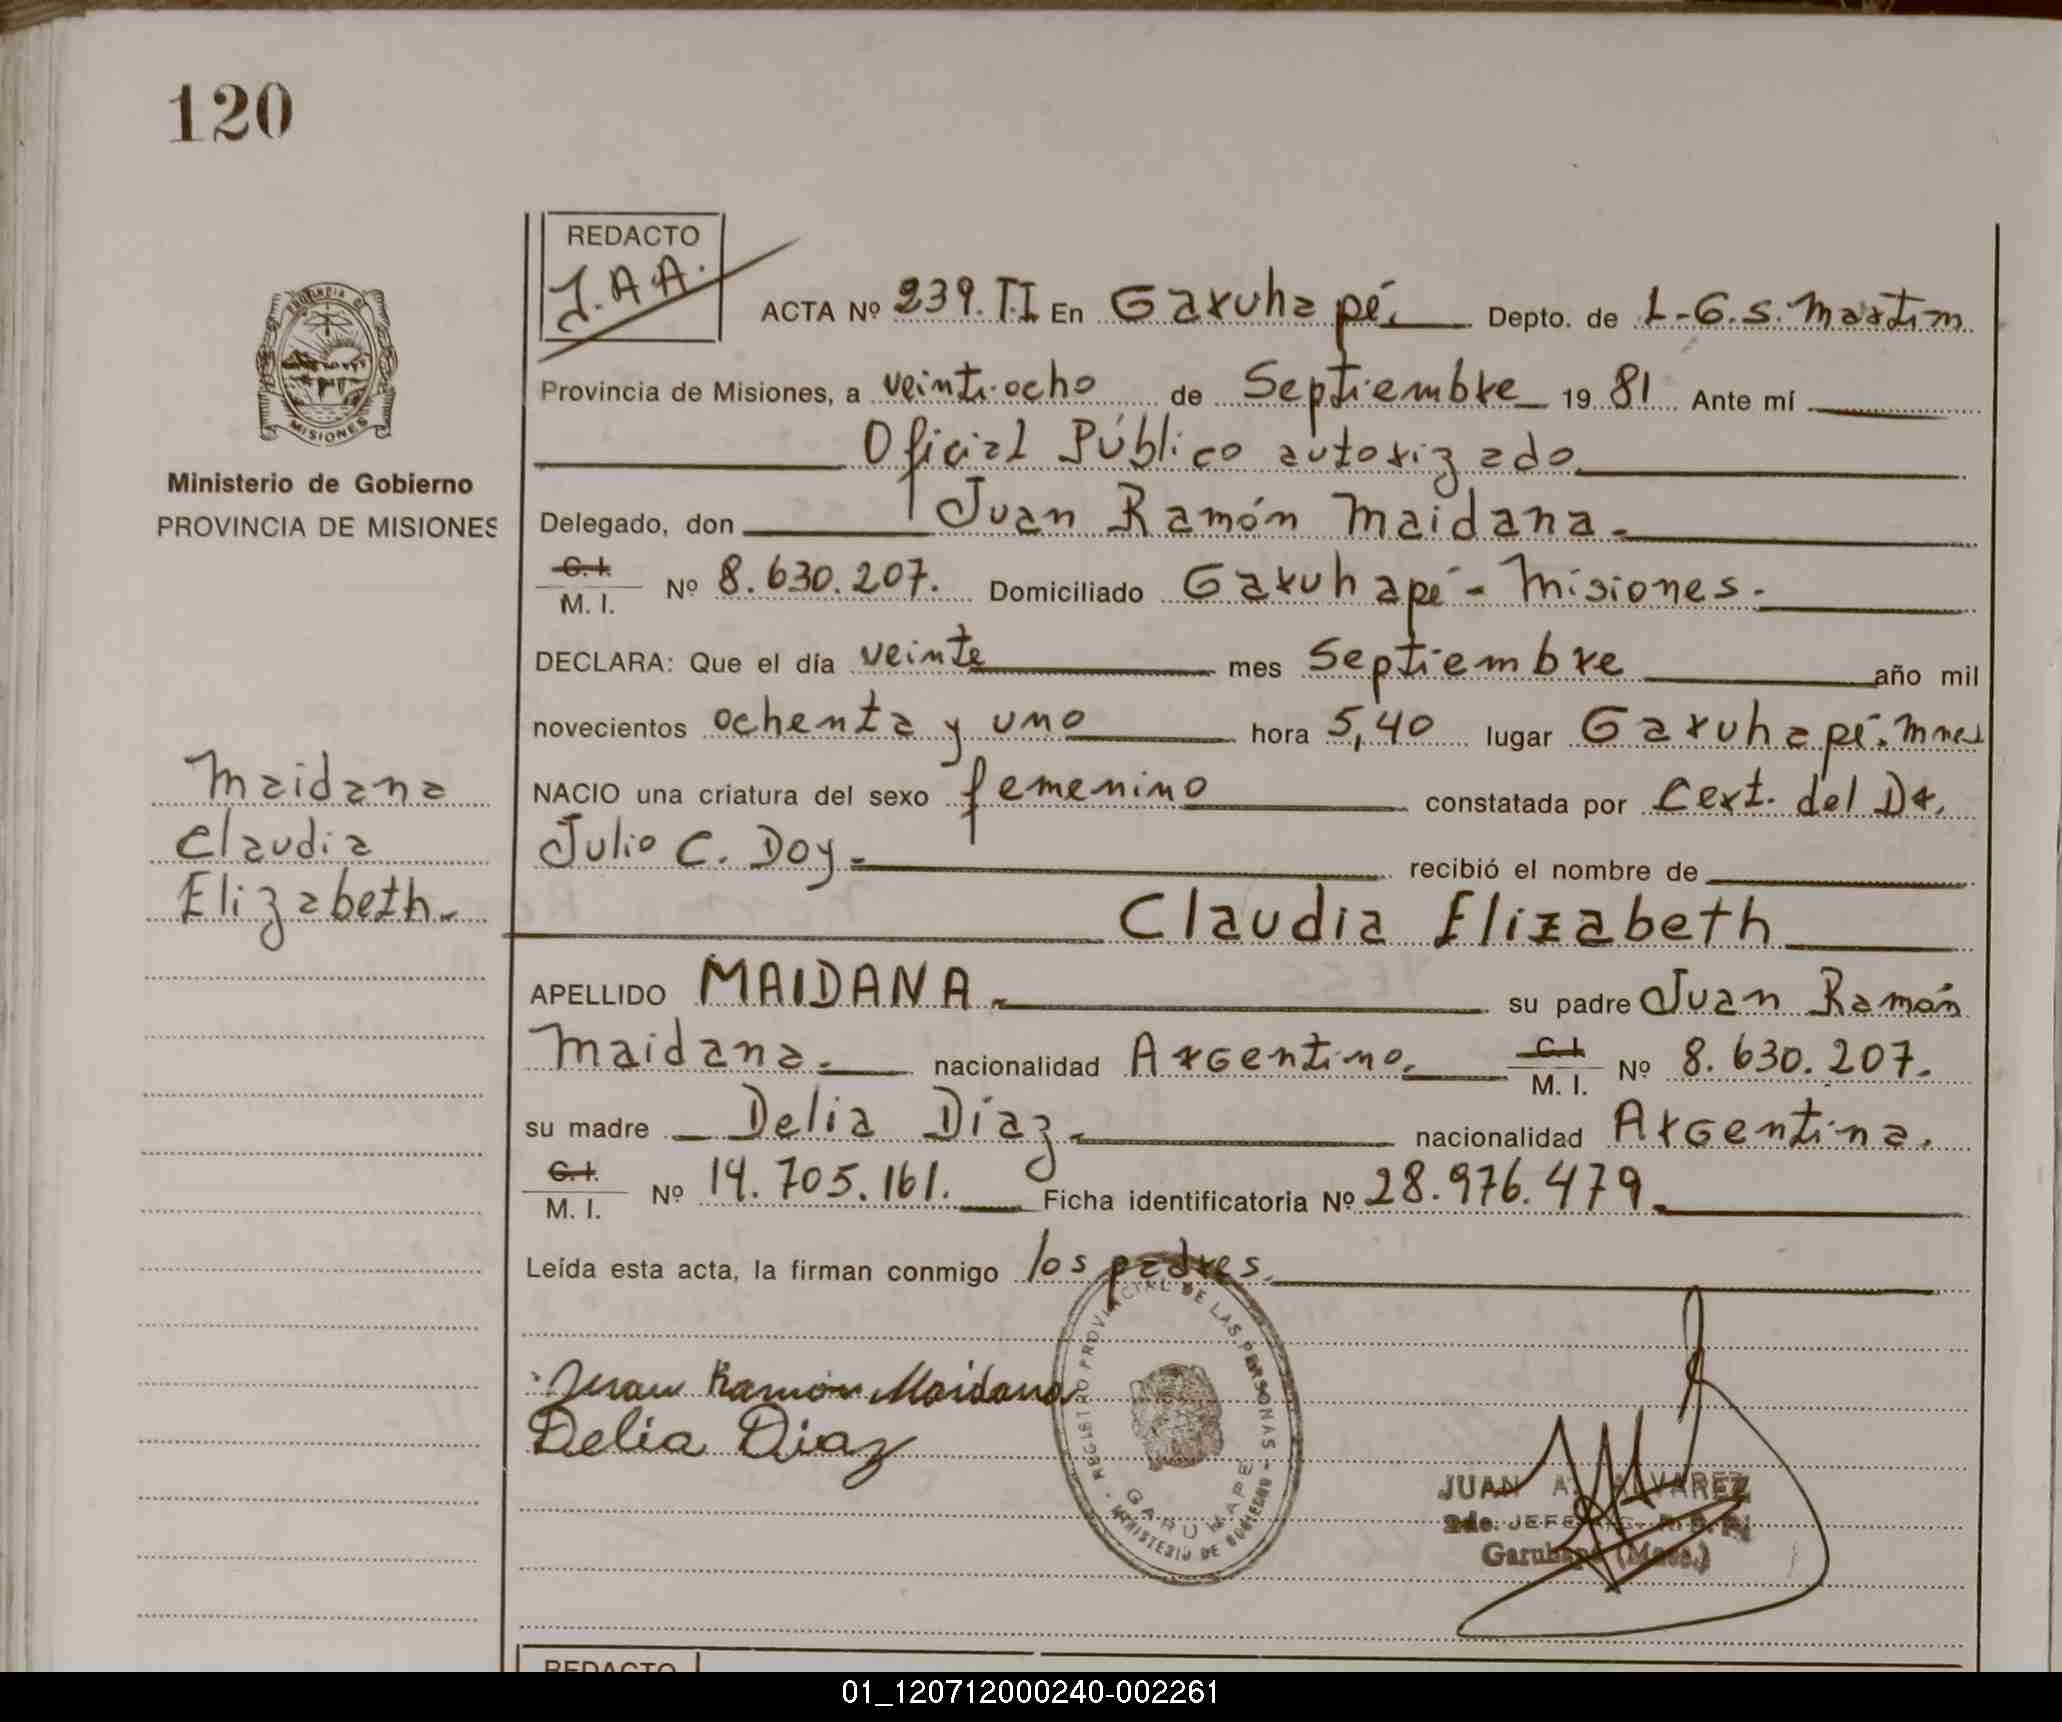 120
REDACTO
J.A.A.
ACTA Nº 239. T.I En Garuhapé, Depto. de L.G.S. Martim
Provincia de Misiones, a veintiocho de Septiembre 19 81 Ante mí
Oficial Público autorizado
Delegado, don Juan Ramón Maidana.
C. I.
M. I. Nº 8.630.207. Domiciliado Garuhapé - Misiones.
DECLARA: Que el día veinte mes Septiembre año mil
novecientos ochenta y uno hora 5,40 lugar Garuhapé. Mnes
NACIO una criatura del sexo femenino constatada por Cert. del Dr.
Julio C. Doy. recibió el nombre de
Claudia Elizabeth
APELLIDO MAIDANA. su padre Juan Ramón
Maidana. nacionalidad Argentino. C. I.
M. I. Nº 8.630.207.
su madre Delia Díaz. nacionalidad Argentina.
C. I.
M. I. Nº 14.705.161. Ficha identificatoria Nº 28.976.479.
Leída esta acta, la firman conmigo los padres.
Juan Ramon Maidana
Delia Diaz
PROVINCIA DE
MISIONES
Ministerio de Gobierno
PROVINCIA DE MISIONES
Maidana
Claudia
Elizabeth.
REGISTRO PROVINCIAL DE LAS PERSONAS -
GARUHAPE
MINISTERIO DE GOBIERNO
JUAN A. ALVAREZ
2do. JEFE
Garuhapé (Mnes.)
REDACTO
01_120712000240-002261